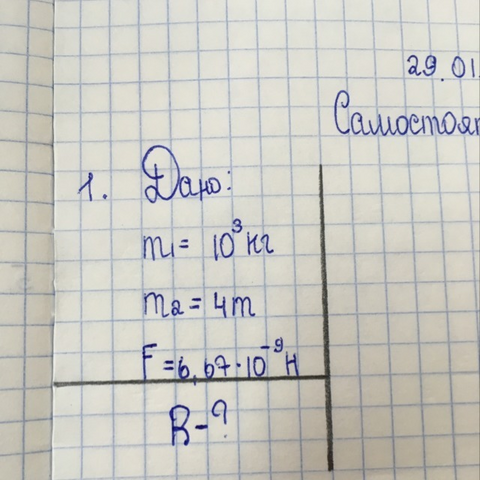 29.01.
Самостоят
1. Дано:
m₁ = 10³ кг
m₂ = 4m
F = 6,67·10⁻⁹ H
R - ?